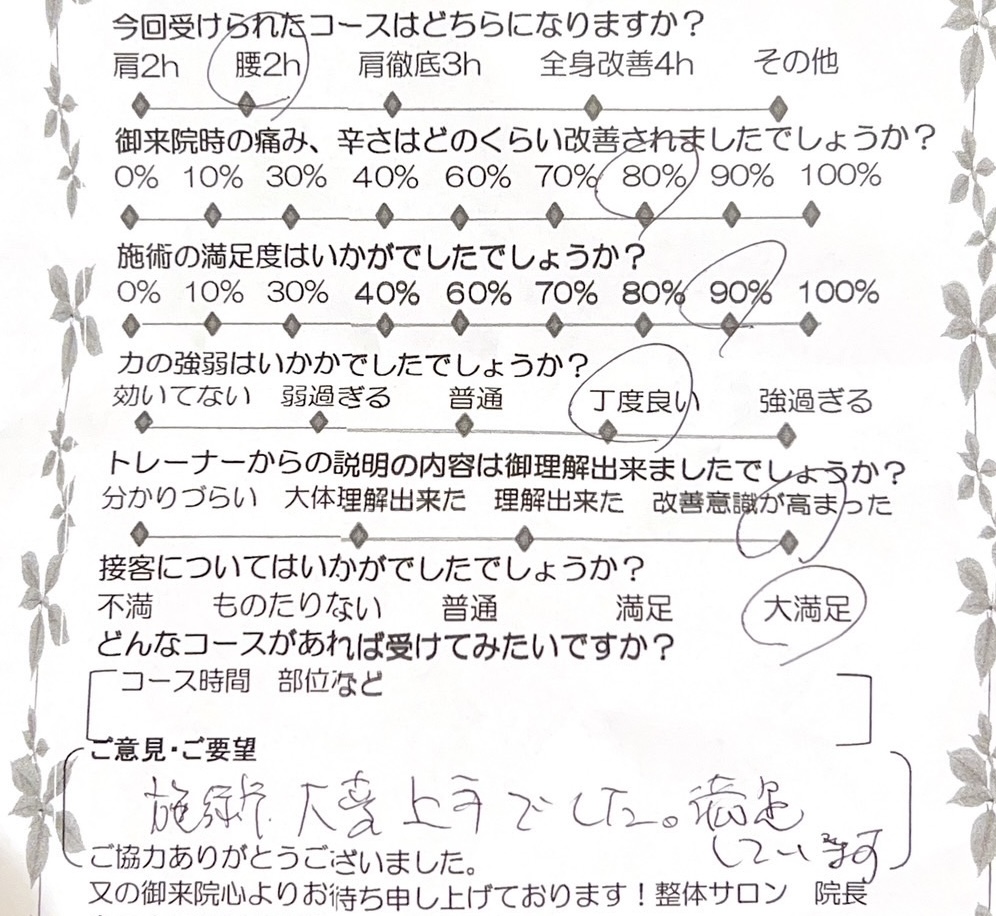 今回受けられたコースはどちらになりますか？
肩2h 腰2h 肩徹底3h 全身改善4h その他
御来院時の痛み、辛さはどのくらい改善されましたでしょうか？
0% 10% 30% 40% 60% 70% 80% 90% 100%
施術の満足度はいかがでしたでしょうか？
0% 10% 30% 40% 60% 70% 80% 90% 100%
力の強弱はいかかでしたでしょうか？
効いてない 弱過ぎる 普通 丁度良い 強過ぎる
トレーナーからの説明の内容は御理解出来ましたでしょうか？
分かりづらい 大体理解出来た 理解出来た 改善意識が高まった
接客についてはいかがでしたでしょうか？
不満 ものたりない 普通 満足 大満足
どんなコースがあれば受けてみたいですか？
コース時間 部位など
ご意見・ご要望
施術 大変上手でした。満足
しています
ご協力ありがとうございました。
又の御来院心よりお待ち申し上げております！整体サロン 院長